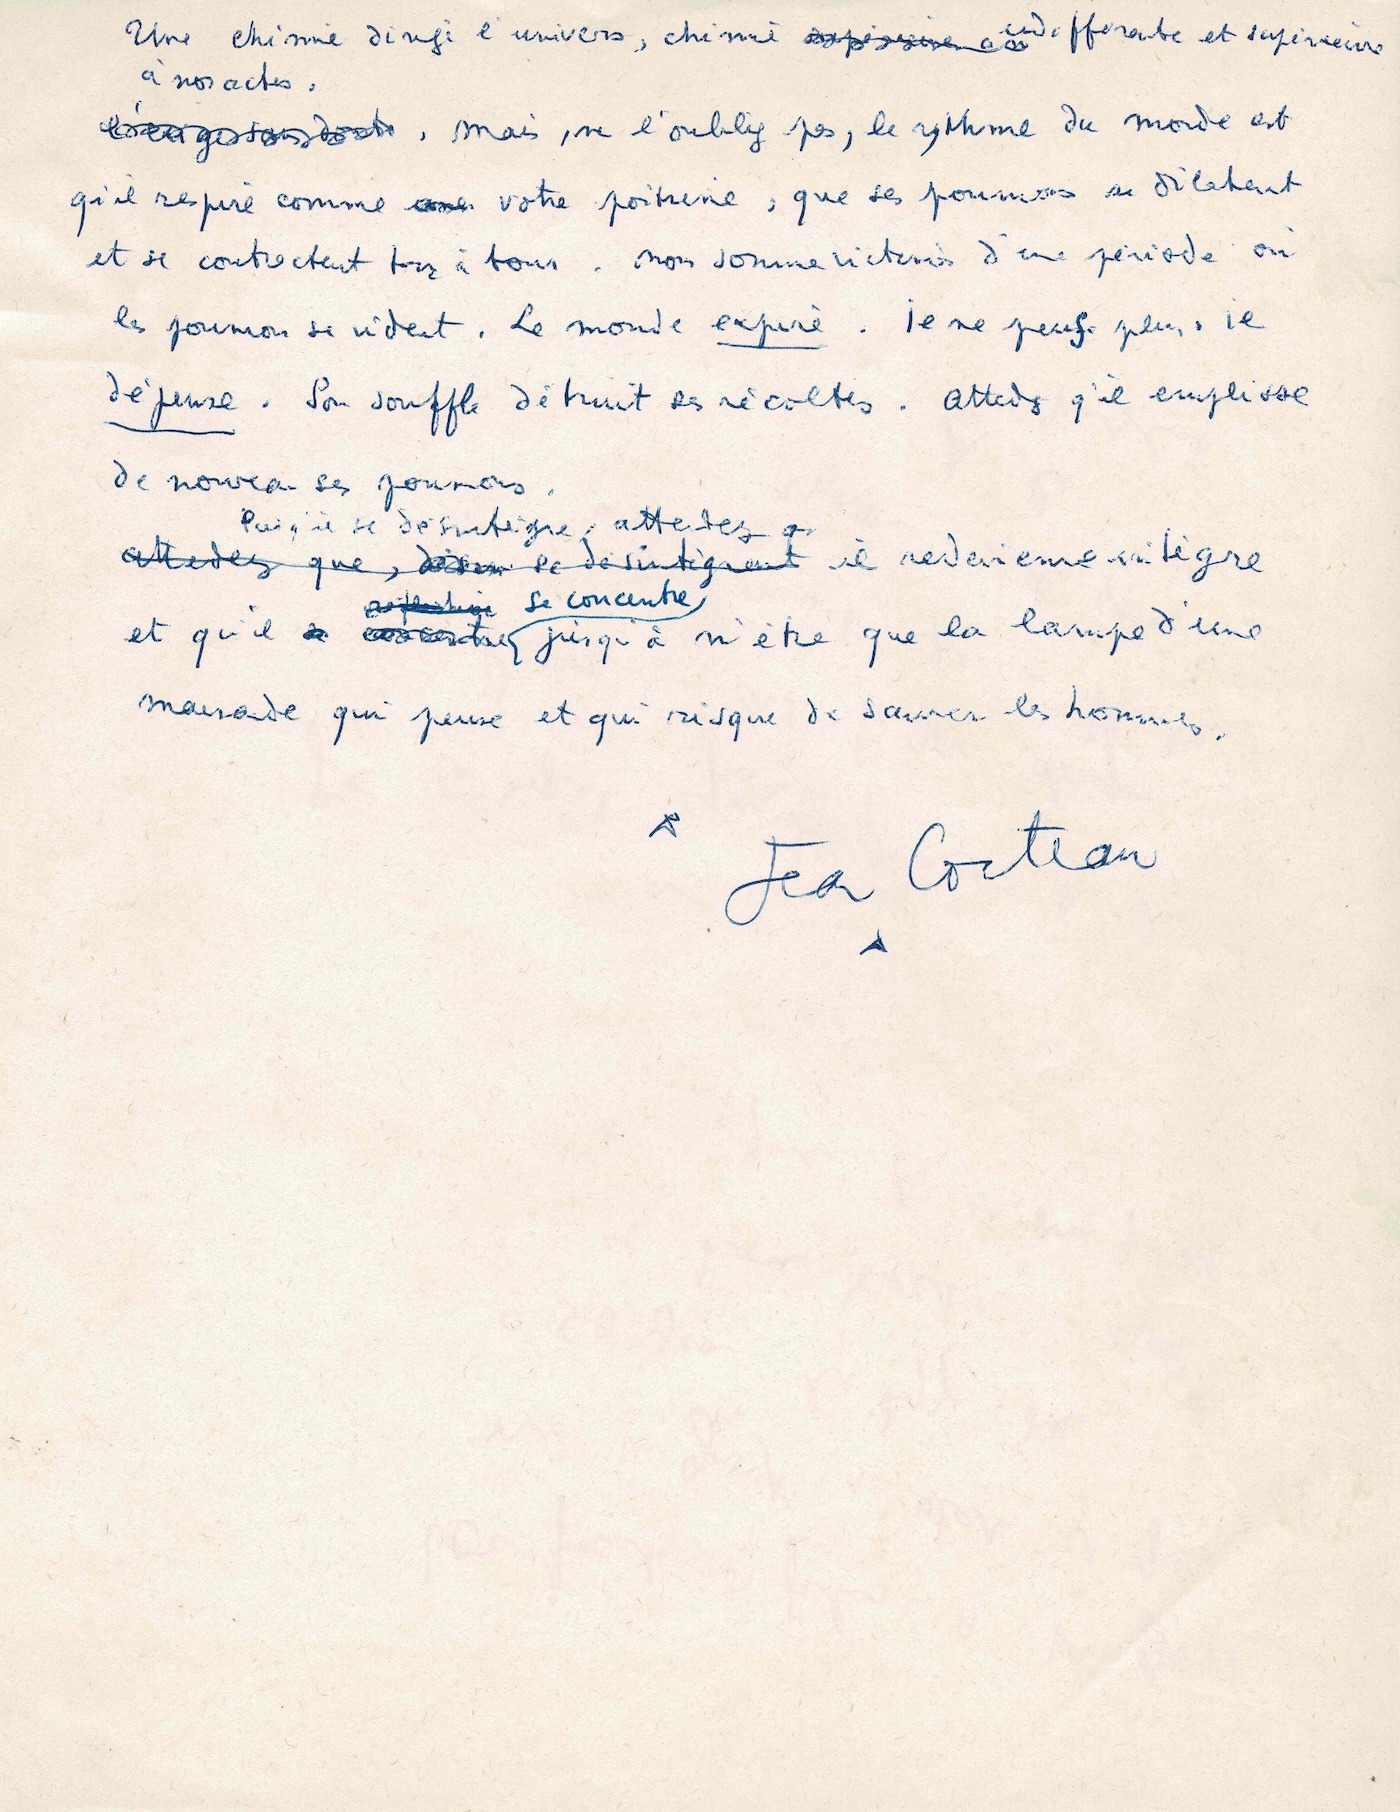 Une chimie dirige l'univers, chimie indifférente et supérieure
à nos actes.
, mais, ne l'oubliez pas, le rythme du monde est
qu'il respire comme votre poitrine, que ses poumons se dilatent
et se contractent tour à tour. Nous sommes victimes d'une période où
les poumons se vident. Le monde expire. Il ne pense plus. Il
dépense. Son souffle détruit ses récoltes. Attendez qu'il emplisse
de nouveau ses poumons.
Puisqu'il se désintègre, attendez q
attendez que, se désintégrant il redevienne intègre
se concentre
et qu'il jusqu'à n'être que la lampe d'une
mansarde qui pense et qui risque de sauver les hommes.
Jean Cocteau